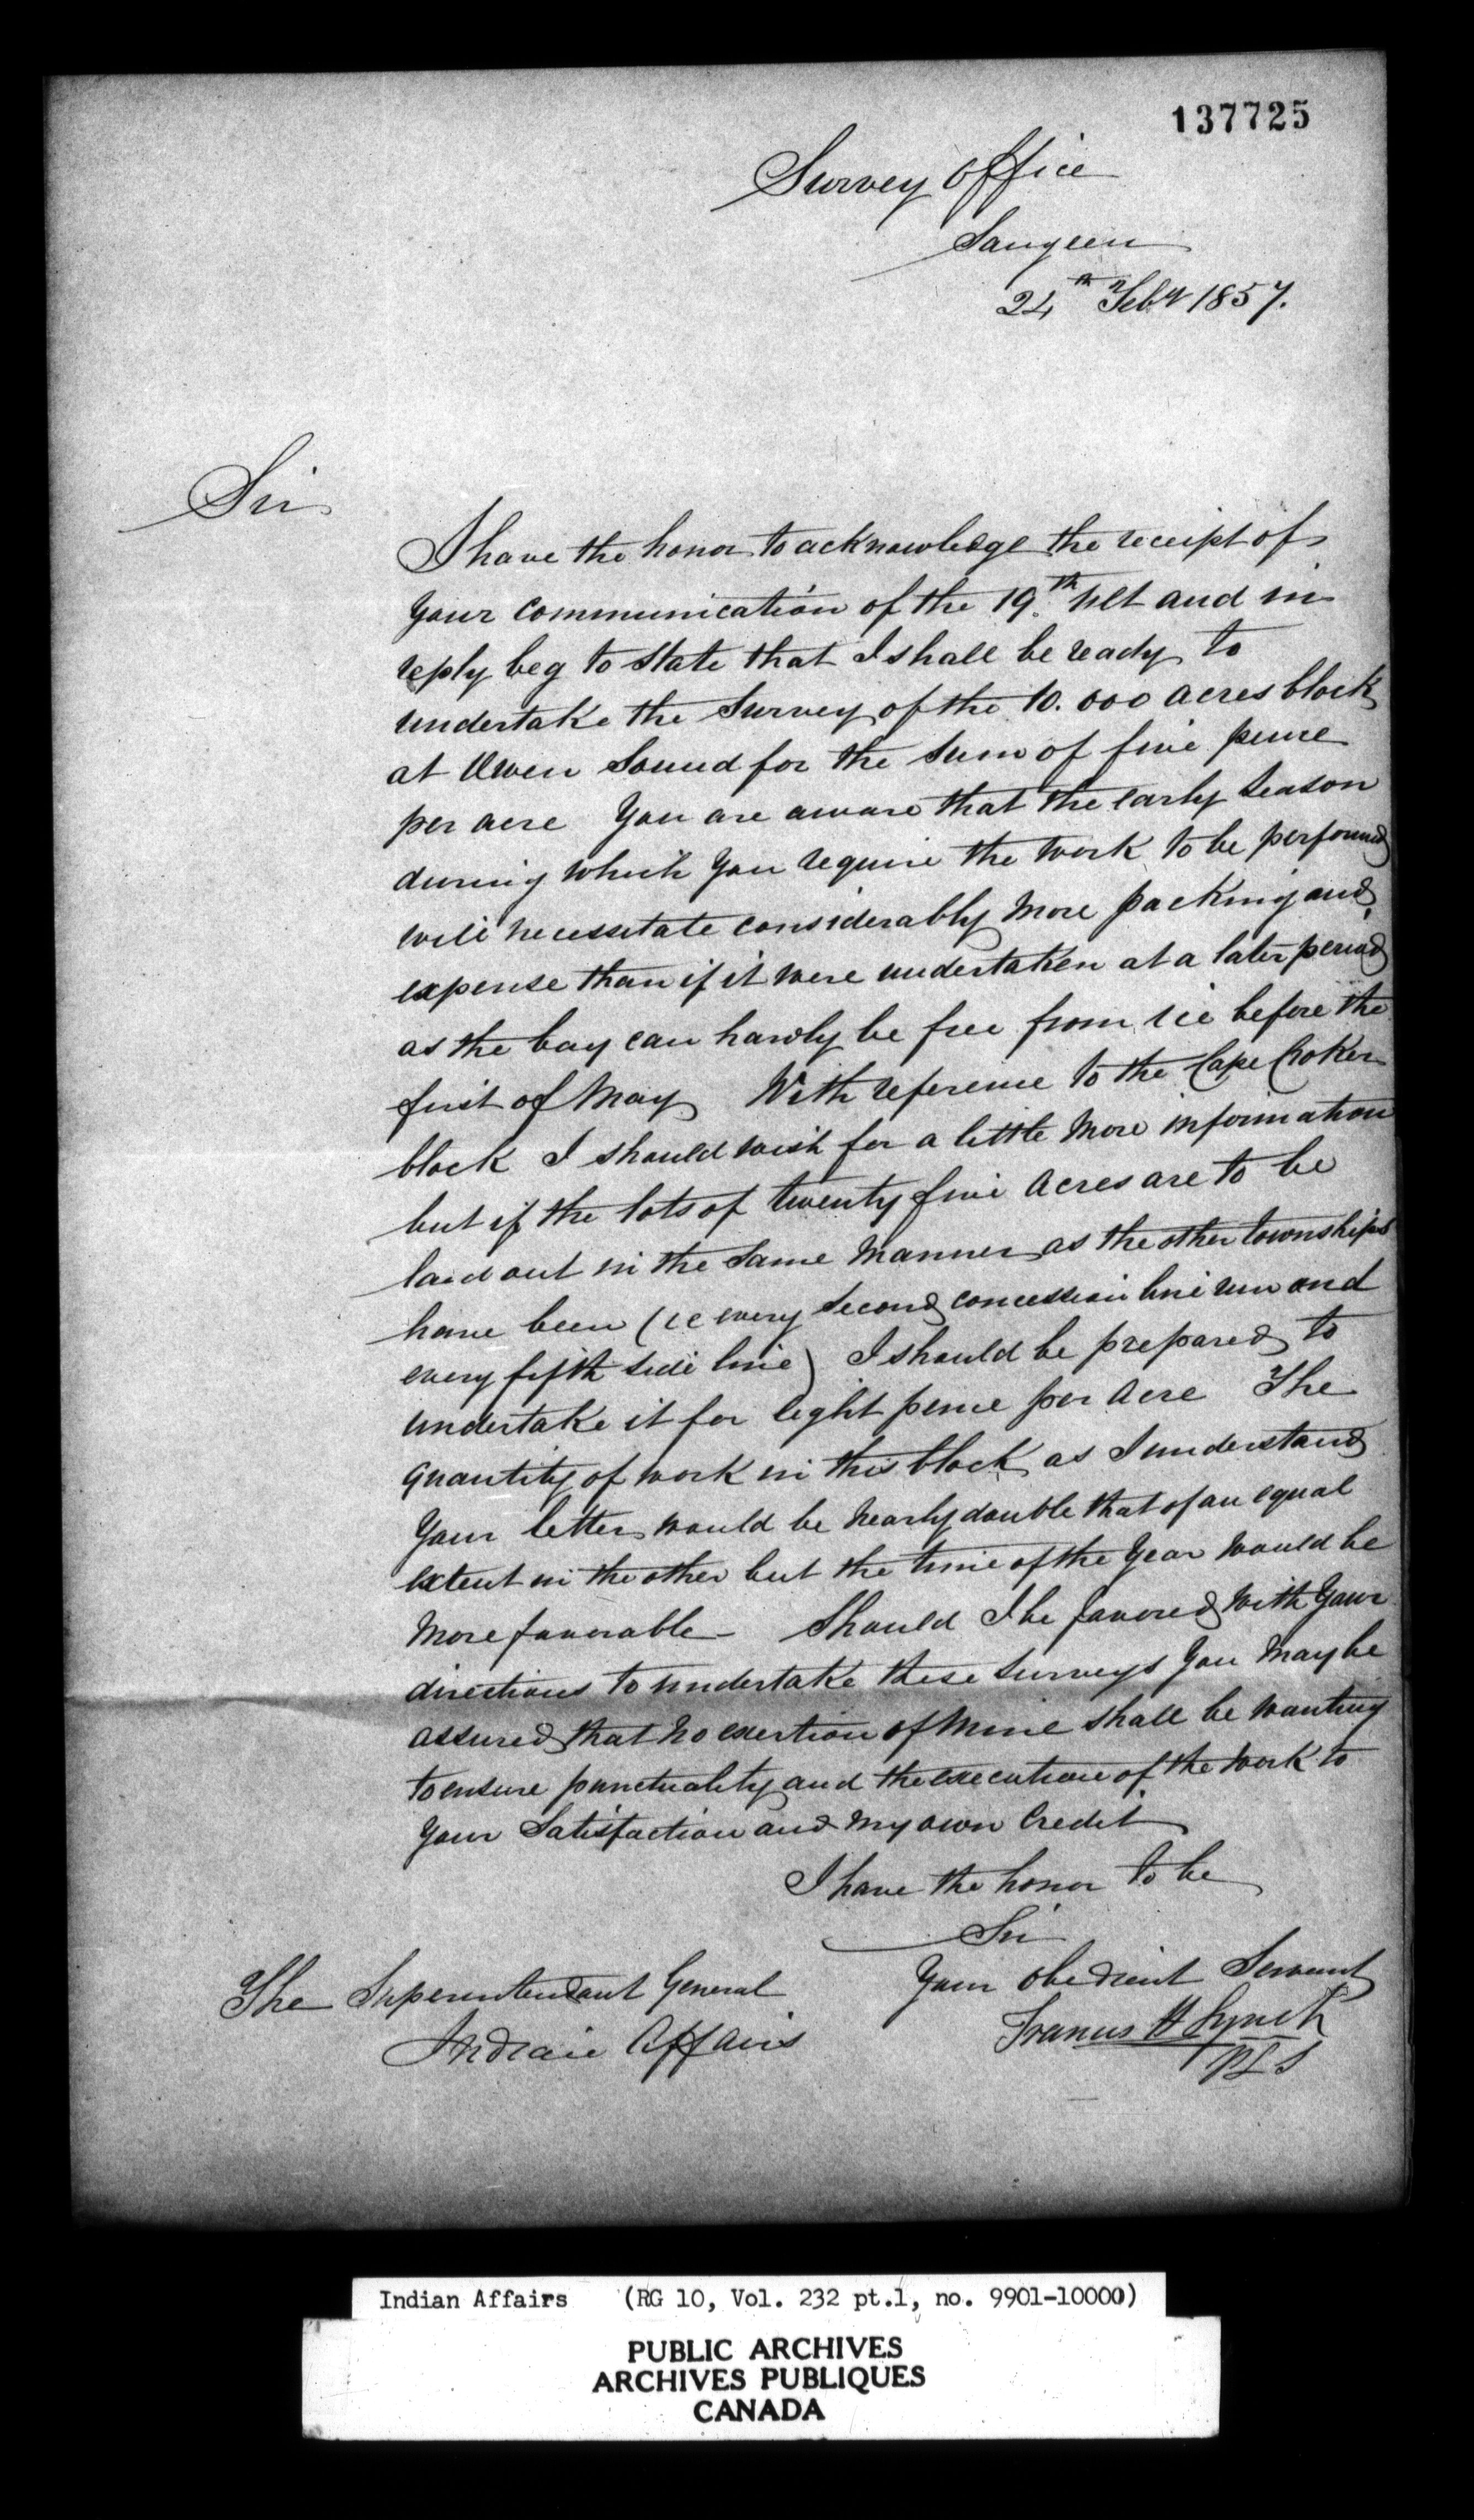 137725
Survey Office
Saugeen
24th Feby 1857.
Sir
I have the honor to acknowledge the receipt of
Your communication of the 19th Ult and in
reply beg to state that I shall be ready to
undertake the Survey of the 10.000 acres block
at Owen Sound for the sum of five pence
per acre You are aware that the early season
during which You require the work to be performed
will necessitate considerably more packing and
expense than if it were undertaken at a later period
as the bay can hardly be free from ice before the
first of May With reference to the Cape Croker
block I should wish for a little more information
but if the lots of twenty five Acres are to be
laid out in the same manner as the other townships
have been (ie every second concession line run and
every fifth side line) I should be prepared to
undertake it for eight pence per Acre The
quantity of work in this block as I understand
Your letter would be nearly double that of an equal
extent in the other but the time of the Year would be
more favorable – Should I be favored with Your
directions to undertake these surveys You may be
assured that no exertion of mine shall be wanting
to ensure punctuality and the execution of the work to
Your Satisfaction and my own Credit
I have the honor to be
Sir
Your obedient Servant
Francis H Lynch
PLS
The Superintendant General
Indian Affairs
Indian Affairs (RG 10, Vol. 232 pt.1, no. 9901-10000)
PUBLIC ARCHIVES
ARCHIVES PUBLIQUES
CANADA